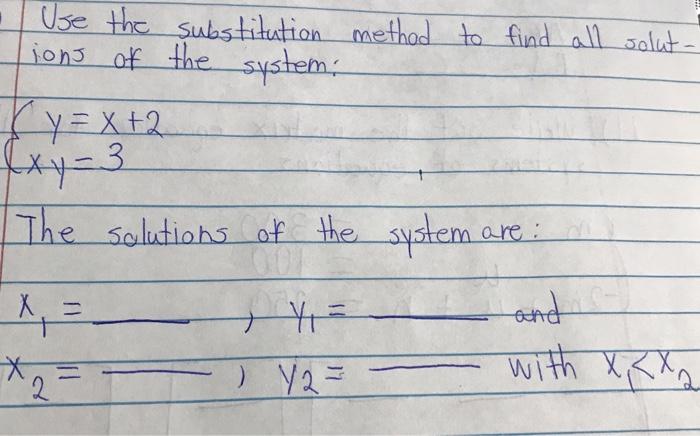 Use the substitution method to find all solut-
ions of the system:
{ y = x + 2
xy = 3
The solutions of the system are:
x₁ = ____ , y₁ = ____ and
x₂ = ____ , y₂ = ____ with x₁ < x₂